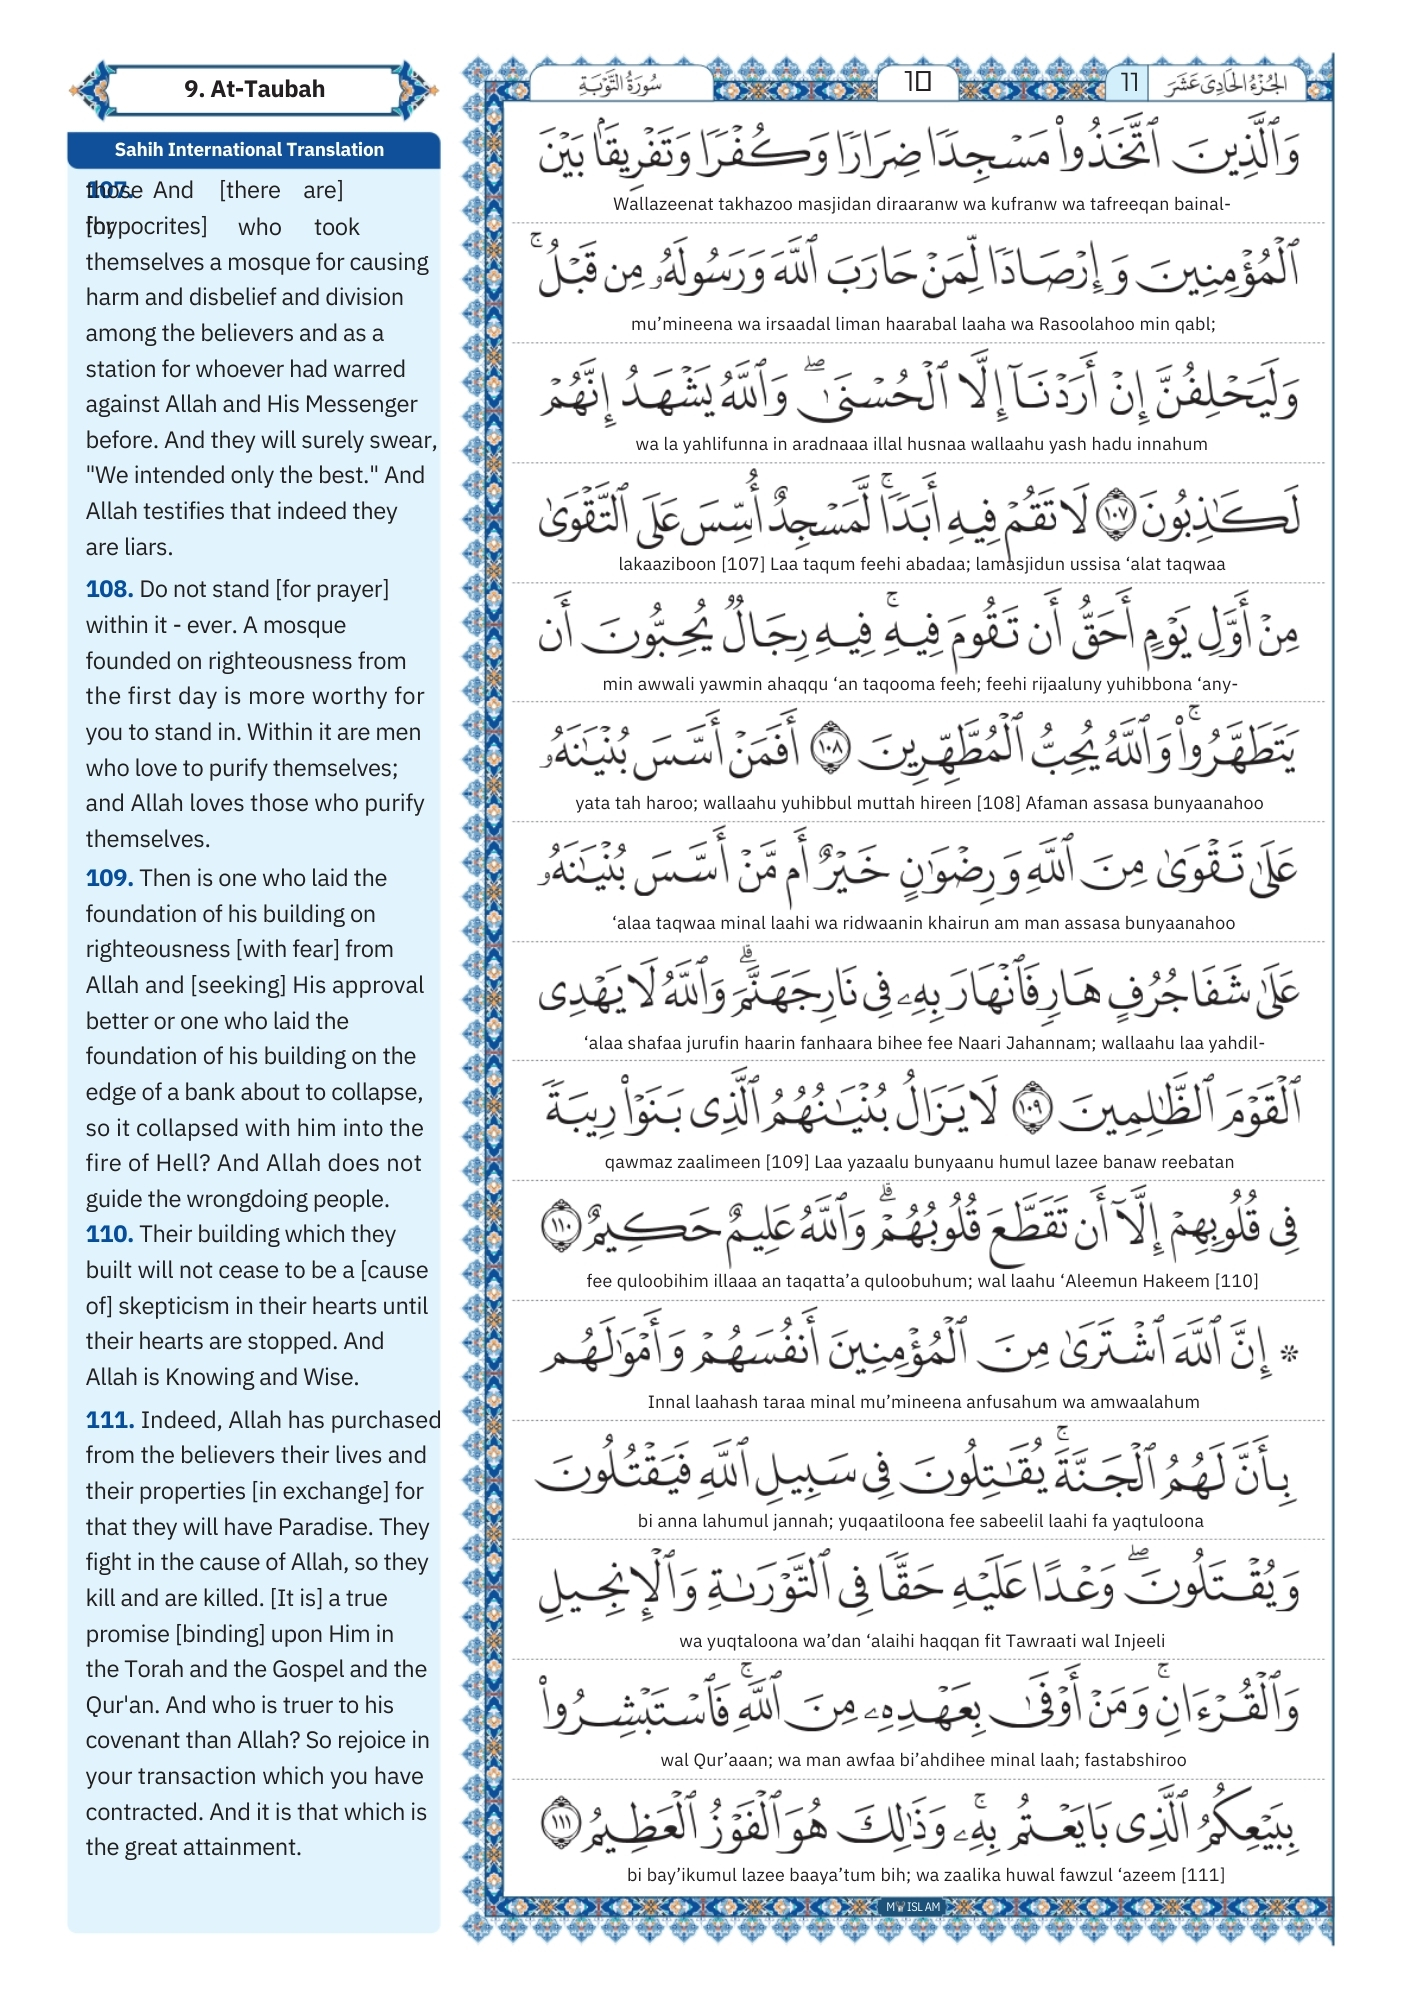 9. At-Taubah
Sahih International Translation
107. those And [there are]
[hypocrites] who took
themselves a mosque for causing
harm and disbelief and division
among the believers and as a
station for whoever had warred
against Allah and His Messenger
before. And they will surely swear,
"We intended only the best." And
Allah testifies that indeed they
are liars.
108. Do not stand [for prayer]
within it - ever. A mosque
founded on righteousness from
the first day is more worthy for
you to stand in. Within it are men
who love to purify themselves;
and Allah loves those who purify
themselves.
109. Then is one who laid the
foundation of his building on
righteousness [with fear] from
Allah and [seeking] His approval
better or one who laid the
foundation of his building on the
edge of a bank about to collapse,
so it collapsed with him into the
fire of Hell? And Allah does not
guide the wrongdoing people.
110. Their building which they
built will not cease to be a [cause
of] skepticism in their hearts until
their hearts are stopped. And
Allah is Knowing and Wise.
111. Indeed, Allah has purchased
from the believers their lives and
their properties [in exchange] for
that they will have Paradise. They
fight in the cause of Allah, so they
kill and are killed. [It is] a true
promise [binding] upon Him in
the Torah and the Gospel and the
Qur'an. And who is truer to his
covenant than Allah? So rejoice in
your transaction which you have
contracted. And it is that which is
the great attainment.
سُورَةُ التَّوْبَةِ
10
11
الجُزْءُ الحَادِيَ عَشَرَ
وَٱلَّذِينَ ٱتَّخَذُوا۟ مَسْجِدًا ضِرَارًا وَكُفْرًا وَتَفْرِيقًۢا بَيْنَ
Wallazeenat takhazoo masjidan diraaranw wa kufranw wa tafreeqan bainal-
ٱلْمُؤْمِنِينَ وَإِرْصَادًا لِّمَنْ حَارَبَ ٱللَّهَ وَرَسُولَهُۥ مِن قَبْلُ ۚ
mu’mineena wa irsaadal liman haarabal laaha wa Rasoolahoo min qabl;
وَلَيَحْلِفُنَّ إِنْ أَرَدْنَآ إِلَّا ٱلْحُسْنَىٰ ۖ وَٱللَّهُ يَشْهَدُ إِنَّهُمْ
wa la yahlifunna in aradnaaa illal husnaa wallaahu yash hadu innahum
لَكَـٰذِبُونَ ١٠٧ لَا تَقُمْ فِيهِ أَبَدًا ۚ لَّمَسْجِدٌ أُسِّسَ عَلَى ٱلتَّقْوَىٰ
lakaaziboon [107] Laa taqum feehi abadaa; lamasjidun ussisa ‘alat taqwaa
مِنْ أَوَّلِ يَوْمٍ أَحَقُّ أَن تَقُومَ فِيهِ ۚ فِيهِ رِجَالٌ يُحِبُّونَ أَن
min awwali yawmin ahaqqu ‘an taqooma feeh; feehi rijaaluny yuhibbona ‘any-
يَتَطَهَّرُوا۟ ۚ وَٱللَّهُ يُحِبُّ ٱلْمُطَّهِّرِينَ ١٠٨ أَفَمَنْ أَسَّسَ بُنْيَـٰنَهُۥ
yata tah haroo; wallaahu yuhibbul muttah hireen [108] Afaman assasa bunyaanahoo
عَلَىٰ تَقْوَىٰ مِنَ ٱللَّهِ وَرِضْوَٰنٍ خَيْرٌ أَم مَّنْ أَسَّسَ بُنْيَـٰنَهُۥ
‘alaa taqwaa minal laahi wa ridwaanin khairun am man assasa bunyaanahoo
عَلَىٰ شَفَا جُرُفٍ هَارٍ فَٱنْهَارَ بِهِۦ فِى نَارِ جَهَنَّمَ ۗ وَٱللَّهُ لَا يَهْدِى
‘alaa shafaa jurufin haarin fanhaara bihee fee Naari Jahannam; wallaahu laa yahdil-
ٱلْقَوْمَ ٱلظَّـٰلِمِينَ ١٠٩ لَا يَزَالُ بُنْيَـٰنُهُمُ ٱلَّذِى بَنَوْا۟ رِيبَةً
qawmaz zaalimeen [109] Laa yazaalu bunyaanu humul lazee banaw reebatan
فِى قُلُوبِهِمْ إِلَّآ أَن تَقَطَّعَ قُلُوبُهُمْ ۗ وَٱللَّهُ عَلِيمٌ حَكِيمٌ ١١٠
fee quloobihim illaaa an taqatta’a quloobuhum; wal laahu ‘Aleemun Hakeem [110]
* إِنَّ ٱللَّهَ ٱشْتَرَىٰ مِنَ ٱلْمُؤْمِنِينَ أَنفُسَهُمْ وَأَمْوَٰلَهُم
Innal laahash taraa minal mu’mineena anfusahum wa amwaalahum
بِأَنَّ لَهُمُ ٱلْجَنَّةَ ۚ يُقَـٰتِلُونَ فِى سَبِيلِ ٱللَّهِ فَيَقْتُلُونَ
bi anna lahumul jannah; yuqaatiloona fee sabeelil laahi fa yaqtuloona
وَيُقْتَلُونَ ۖ وَعْدًا عَلَيْهِ حَقًّا فِى ٱلتَّوْرَىٰةِ وَٱلْإِنجِيلِ
wa yuqtaloona wa’dan ‘alaihi haqqan fit Tawraati wal Injeeli
وَٱلْقُرْءَانِ ۚ وَمَنْ أَوْفَىٰ بِعَهْدِهِۦ مِنَ ٱللَّهِ ۚ فَٱسْتَبْشِرُوا۟
wal Qur’aaan; wa man awfaa bi’ahdihee minal laah; fastabshiroo
بِبَيْعِكُمُ ٱلَّذِى بَايَعْتُم بِهِۦ ۚ وَذَٰلِكَ هُوَ ٱلْفَوْزُ ٱلْعَظِيمُ ١١١
bi bay’ikumul lazee baaya’tum bih; wa zaalika huwal fawzul ‘azeem [111]